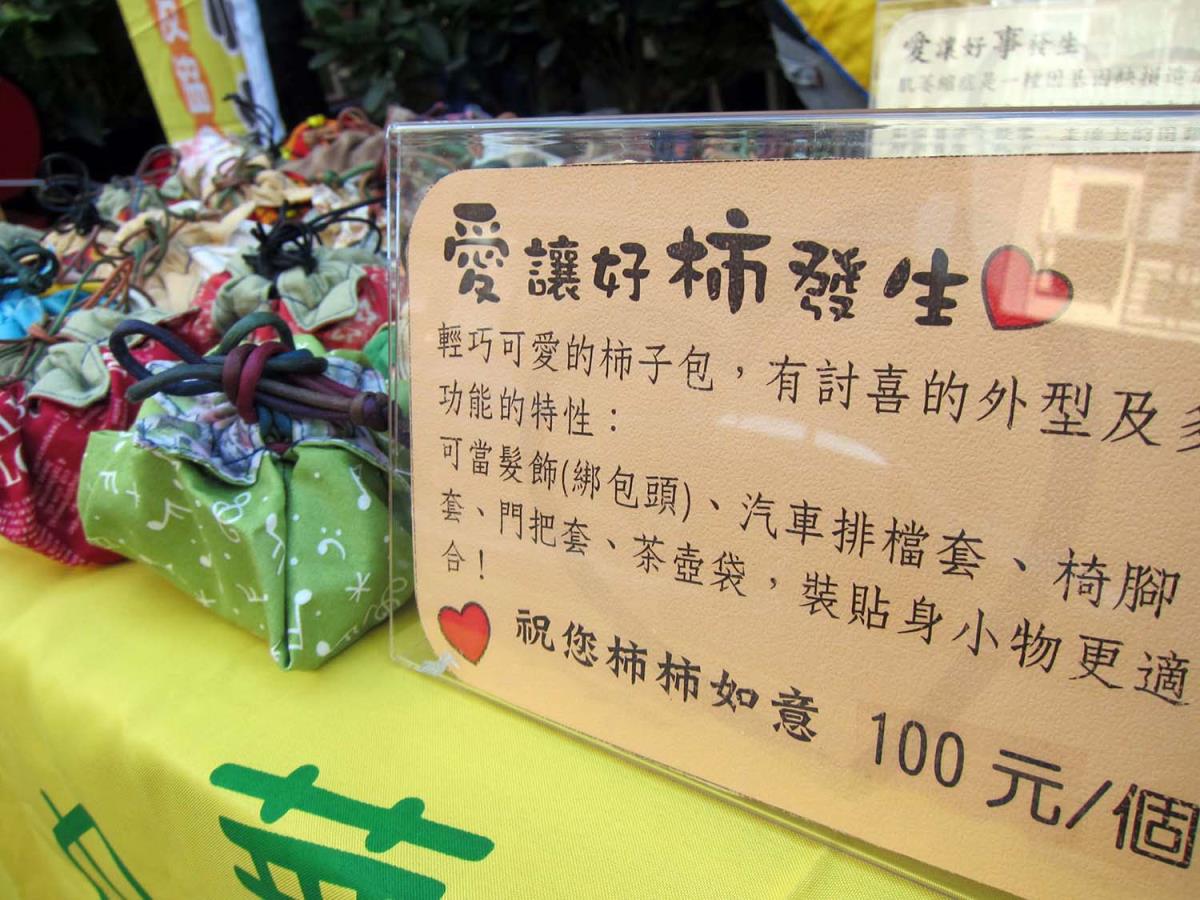 愛讓好事發生
肌萎縮症是一種因基因缺損造
愛讓好柿發生
輕巧可愛的柿子包，有討喜的外型及多
功能的特性：
可當髮飾(綁包頭)、汽車排檔套、椅腳
套、門把套、茶壺袋，裝貼身小物更適
合！
祝您柿柿如意 100元/個